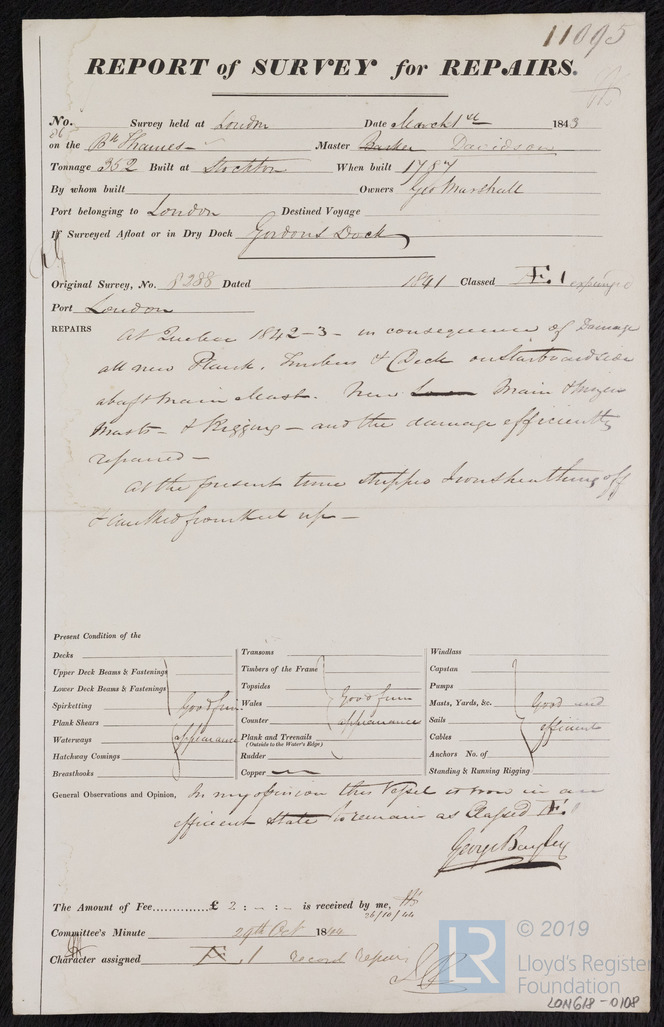 11095
REPORT of SURVEY for REPAIRS.
No. Survey held at London Date March 1st 1843
on the Bk Thames Master Barker Davidson
Tonnage 352 Built at Stockton When built 1787
By whom built Owners Geo Marshall
Port belonging to London Destined Voyage
If Surveyed Afloat or in Dry Dock Gordons Dock
Original Survey, No. 8288 Dated 1841 Classed Æ.1 expunged
Port London
REPAIRS At Quebec 1842-3- in consequence of Damage
all new Plank, Timbers & Deck on Starboard side
abaft main Mast. New Main & Mizen
Masts - & Rigging - and the damage efficiently
repaired -
At the present time stripped Iron sheathing off
& caulked from Keel up -
Present Condition of the
Decks
Upper Deck Beams & Fastenings
Lower Deck Beams & Fastenings
Spirketting
Plank Shears
Waterways
Hatchway Comings
Breasthooks
Good from
appearance
Transoms
Timbers of the Frame
Topsides
Wales
Counter
Plank and Treenails
(Outside to the Water's Edge)
Rudder
Copper
Good from
appearance
Windlass
Capstan
Pumps
Masts, Yards, &c.
Sails
Cables
Anchors No. of
Standing & Running Rigging
Good and
efficient
General Observations and Opinion, In my opinion this Vessel is now in an
efficient state to remain as Classed Æ.1
George Bayley
The Amount of Fee..............£ 2 : - : - is received by me,
26/10/44
Committee's Minute 29th Oct 1844
Character assigned Æ.1 record repairs
LR
© 2019
Lloyd's Register
Foundation
LON618-0108